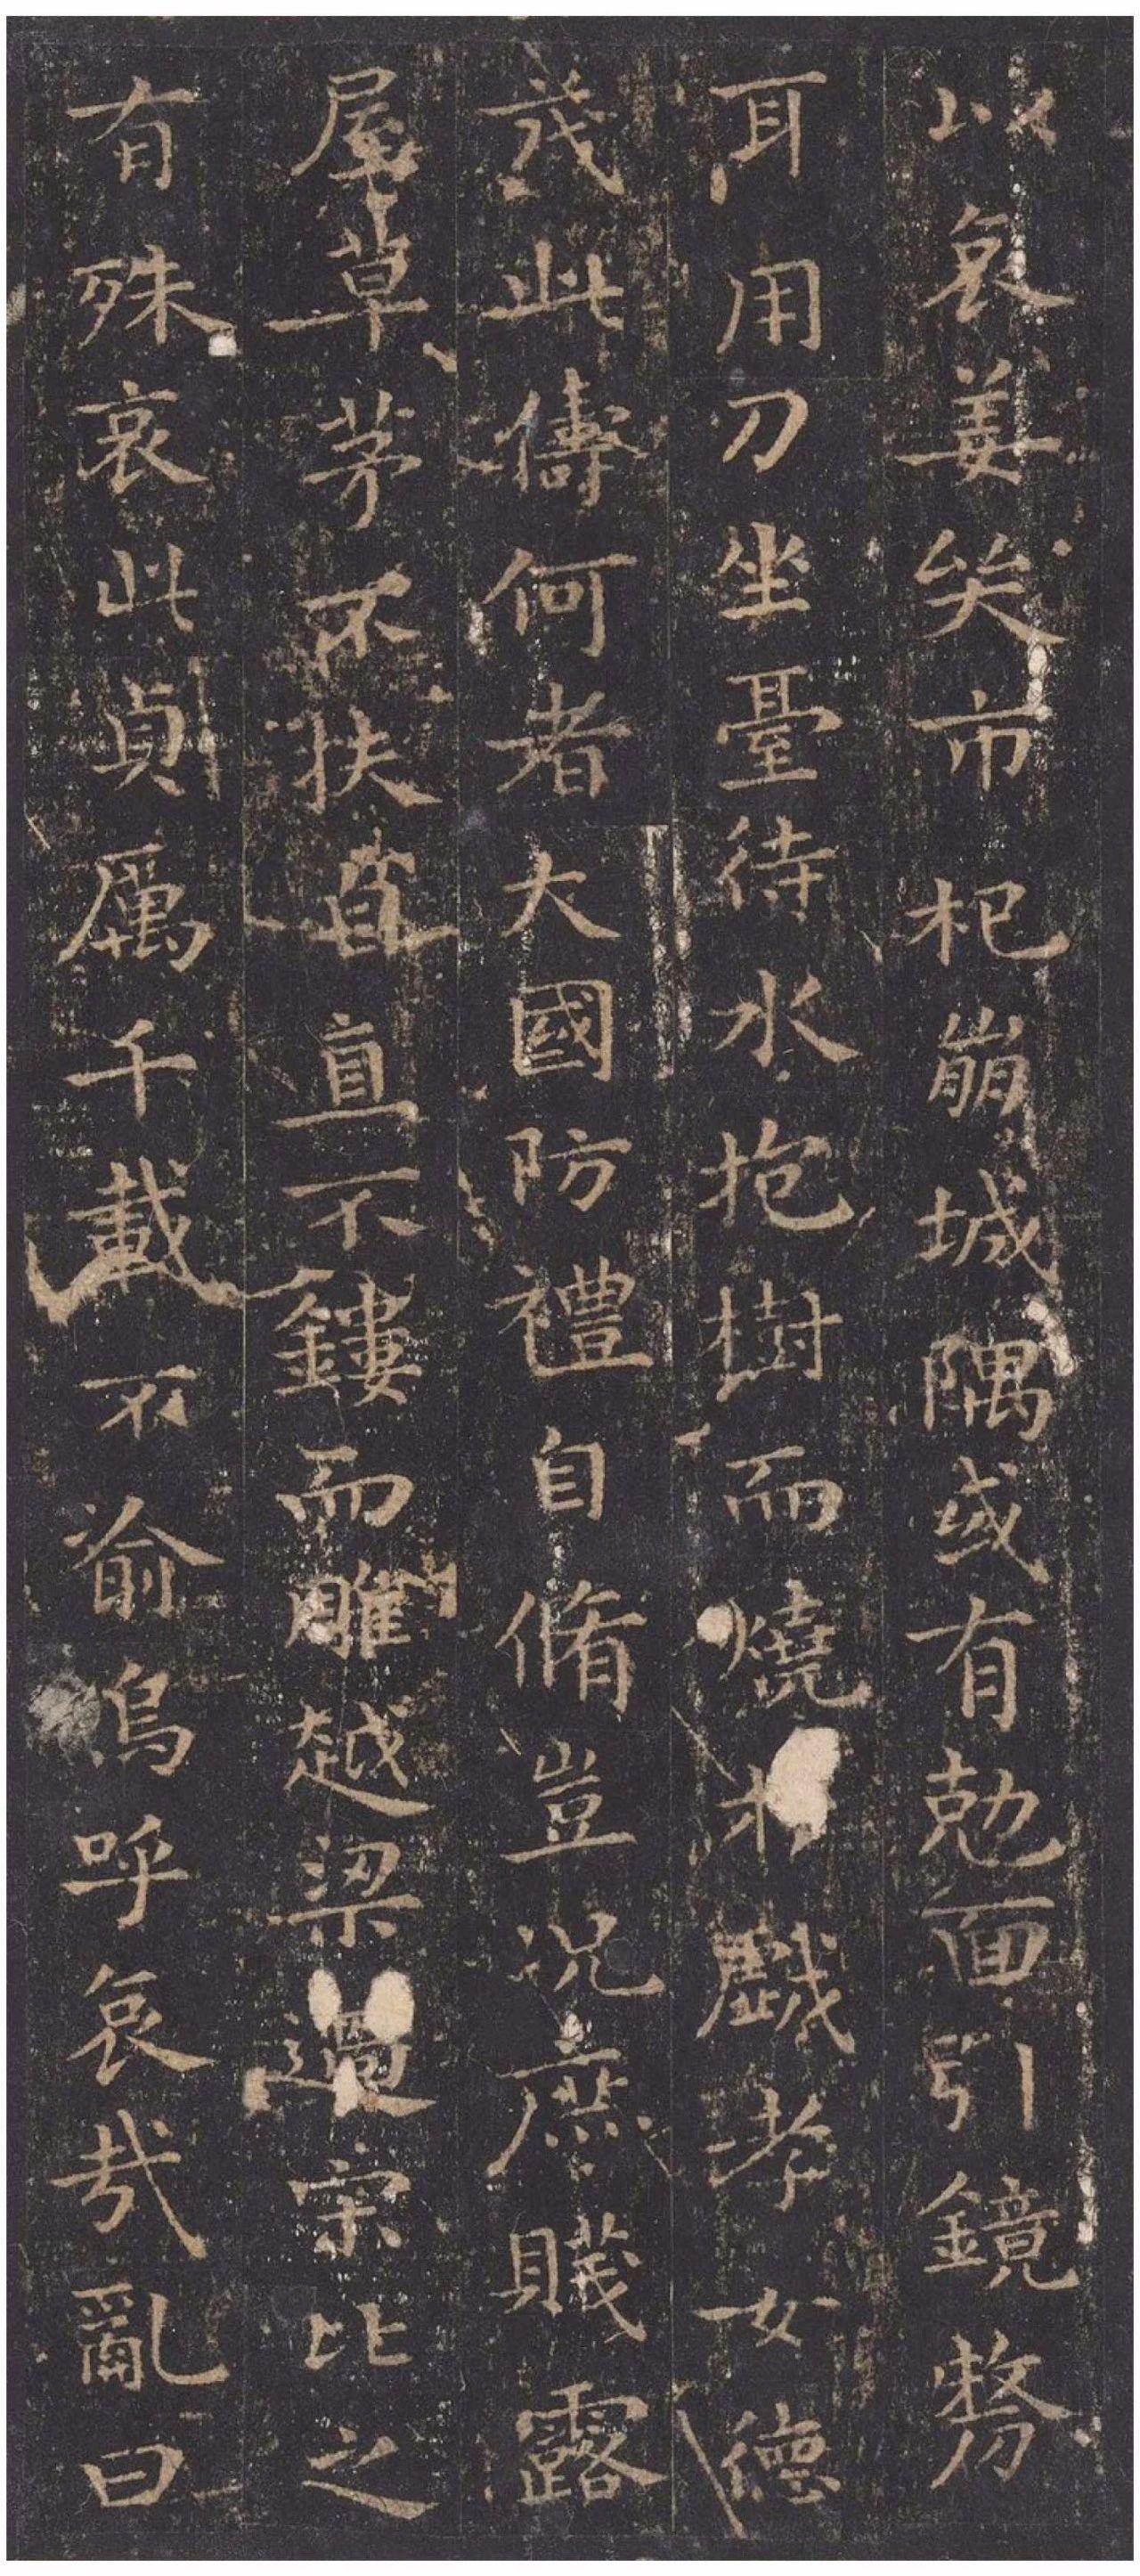 以哀姜哭市杞崩城隅或有剋面引鏡剺
耳用刀坐臺待水抱樹而燒於戲孝女德
茂此儔何者大國防禮自脩豈況庶賤露
屋草茅不扶自直不鏤而雕越梁過宋比之
有殊哀此貞厲千載不渝嗚呼哀哉亂曰